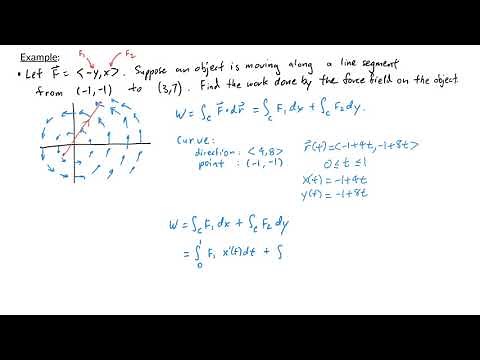 Example:
F₁ F₂
• Let F⃗ = <-y, x>. Suppose an object is moving along a line segment
from (-1,-1) to (3,7). Find the work done by the force field on the object.
W = ∫_C F⃗ • dr⃗ = ∫_C F₁ dx + ∫_C F₂ dy.
Curve:
direction: <4,8>
point: (-1,-1)
r⃗(t) = <-1+4t, -1+8t>
0 ≤ t ≤ 1
x(t) = -1+4t
y(t) = -1+8t
W = ∫_C F₁ dx + ∫_C F₂ dy
= ∫₀¹ F₁ x'(t) dt + ∫